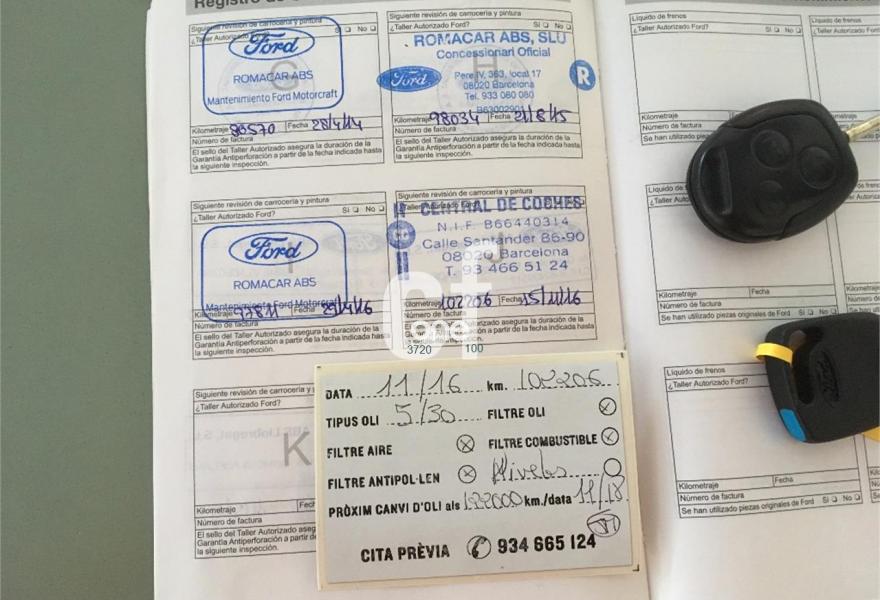 Registro de
Siguiente revisión de carrocería y pintura
¿Taller Autorizado Ford? Sí No
Ford
ROMACAR ABS
Mantenimiento Ford Motorcraft
G
Kilometraje 80570 Fecha 28/4/14
Número de factura
El sello del Taller Autorizado asegura la duración de la
Garantía Antiperforación a partir de la fecha indicada hasta
la siguiente inspección.
Siguiente revisión de carrocería y pintura
¿Taller Autorizado Ford? Sí No
ROMACAR ABS, SLU
Concessionari Oficial
Ford
Pere IV, 363, local 17
08020 Barcelona
Tel. 933 080 080
B63002901
R
H
Kilometraje 98034 Fecha 21/8/15
Número de factura
El sello del Taller Autorizado asegura la duración de la
Garantía Antiperforación a partir de la fecha indicada hasta
la siguiente inspección.
Siguiente revisión de carrocería y pintura
¿Taller Autorizado Ford? Sí No
Ford
I
ROMACAR ABS
Mantenimiento Ford Motorcraft
Kilometraje 97811 Fecha 29/4/16
Número de factura
El sello del Taller Autorizado asegura la duración de la
Garantía Antiperforación a partir de la fecha indicada hasta
la siguiente inspección.
Siguiente revisión de carrocería y pintura
¿Taller Autorizado Ford? Sí No
CENTRAL DE COCHES
N.I.F. B66440314
Calle Santánder 86-90
08020 Barcelona
T. 93 466 51 24
J
Kilometraje 102206 Fecha 15/11/16
Número de factura
El sello del Taller Autorizado asegura la duración de la
Garantía Antiperforación a partir de la fecha indicada hasta
la siguiente inspección.
one
3720 100
Siguiente revisión de carrocería y
¿Taller Autorizado Ford?
K
Kilometraje
Número de factura
El sello del Taller Autorizado aseg
Garantía Antiperforación a partir d
la siguiente inspección.
DATA 11/16 km. 102206
TIPUS OLI 5/30 FILTRE OLI
FILTRE AIRE FILTRE COMBUSTIBLE
FILTRE ANTIPOL·LEN Niveles
PRÒXIM CANVI D'OLI als 122000 km./data 11/18
CITA PRÈVIA 934 665 124
Líquido de frenos
¿Taller Autorizado Ford?
Kilometraje
Número de factura
Se han utilizado piezas
Líquido de frenos
¿Taller Autorizado Ford?
Líquido de
¿Taller Au
Kilometraje Fecha
Número de factura
Se han utilizado piezas originales de Ford Sí No
Kilometraje
Número de
Se han utiliz
Líquido de frenos
¿Taller Autorizado Ford?
Kilometraje Fecha
Número de factura
Se han utilizado piezas originales de Ford Sí No
Ford